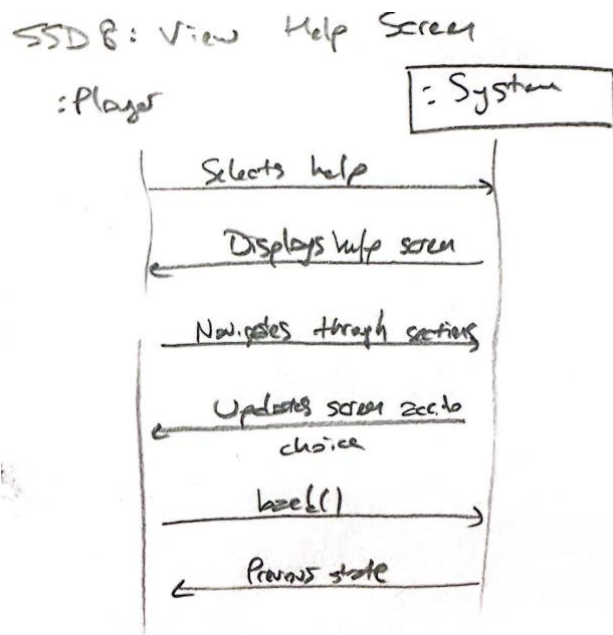 SSD 8: View Help Screen
:Player
: System
Selects help
Displays help screen
Navigates through sections
Updates screen acc. to
choice
back()
Previous state